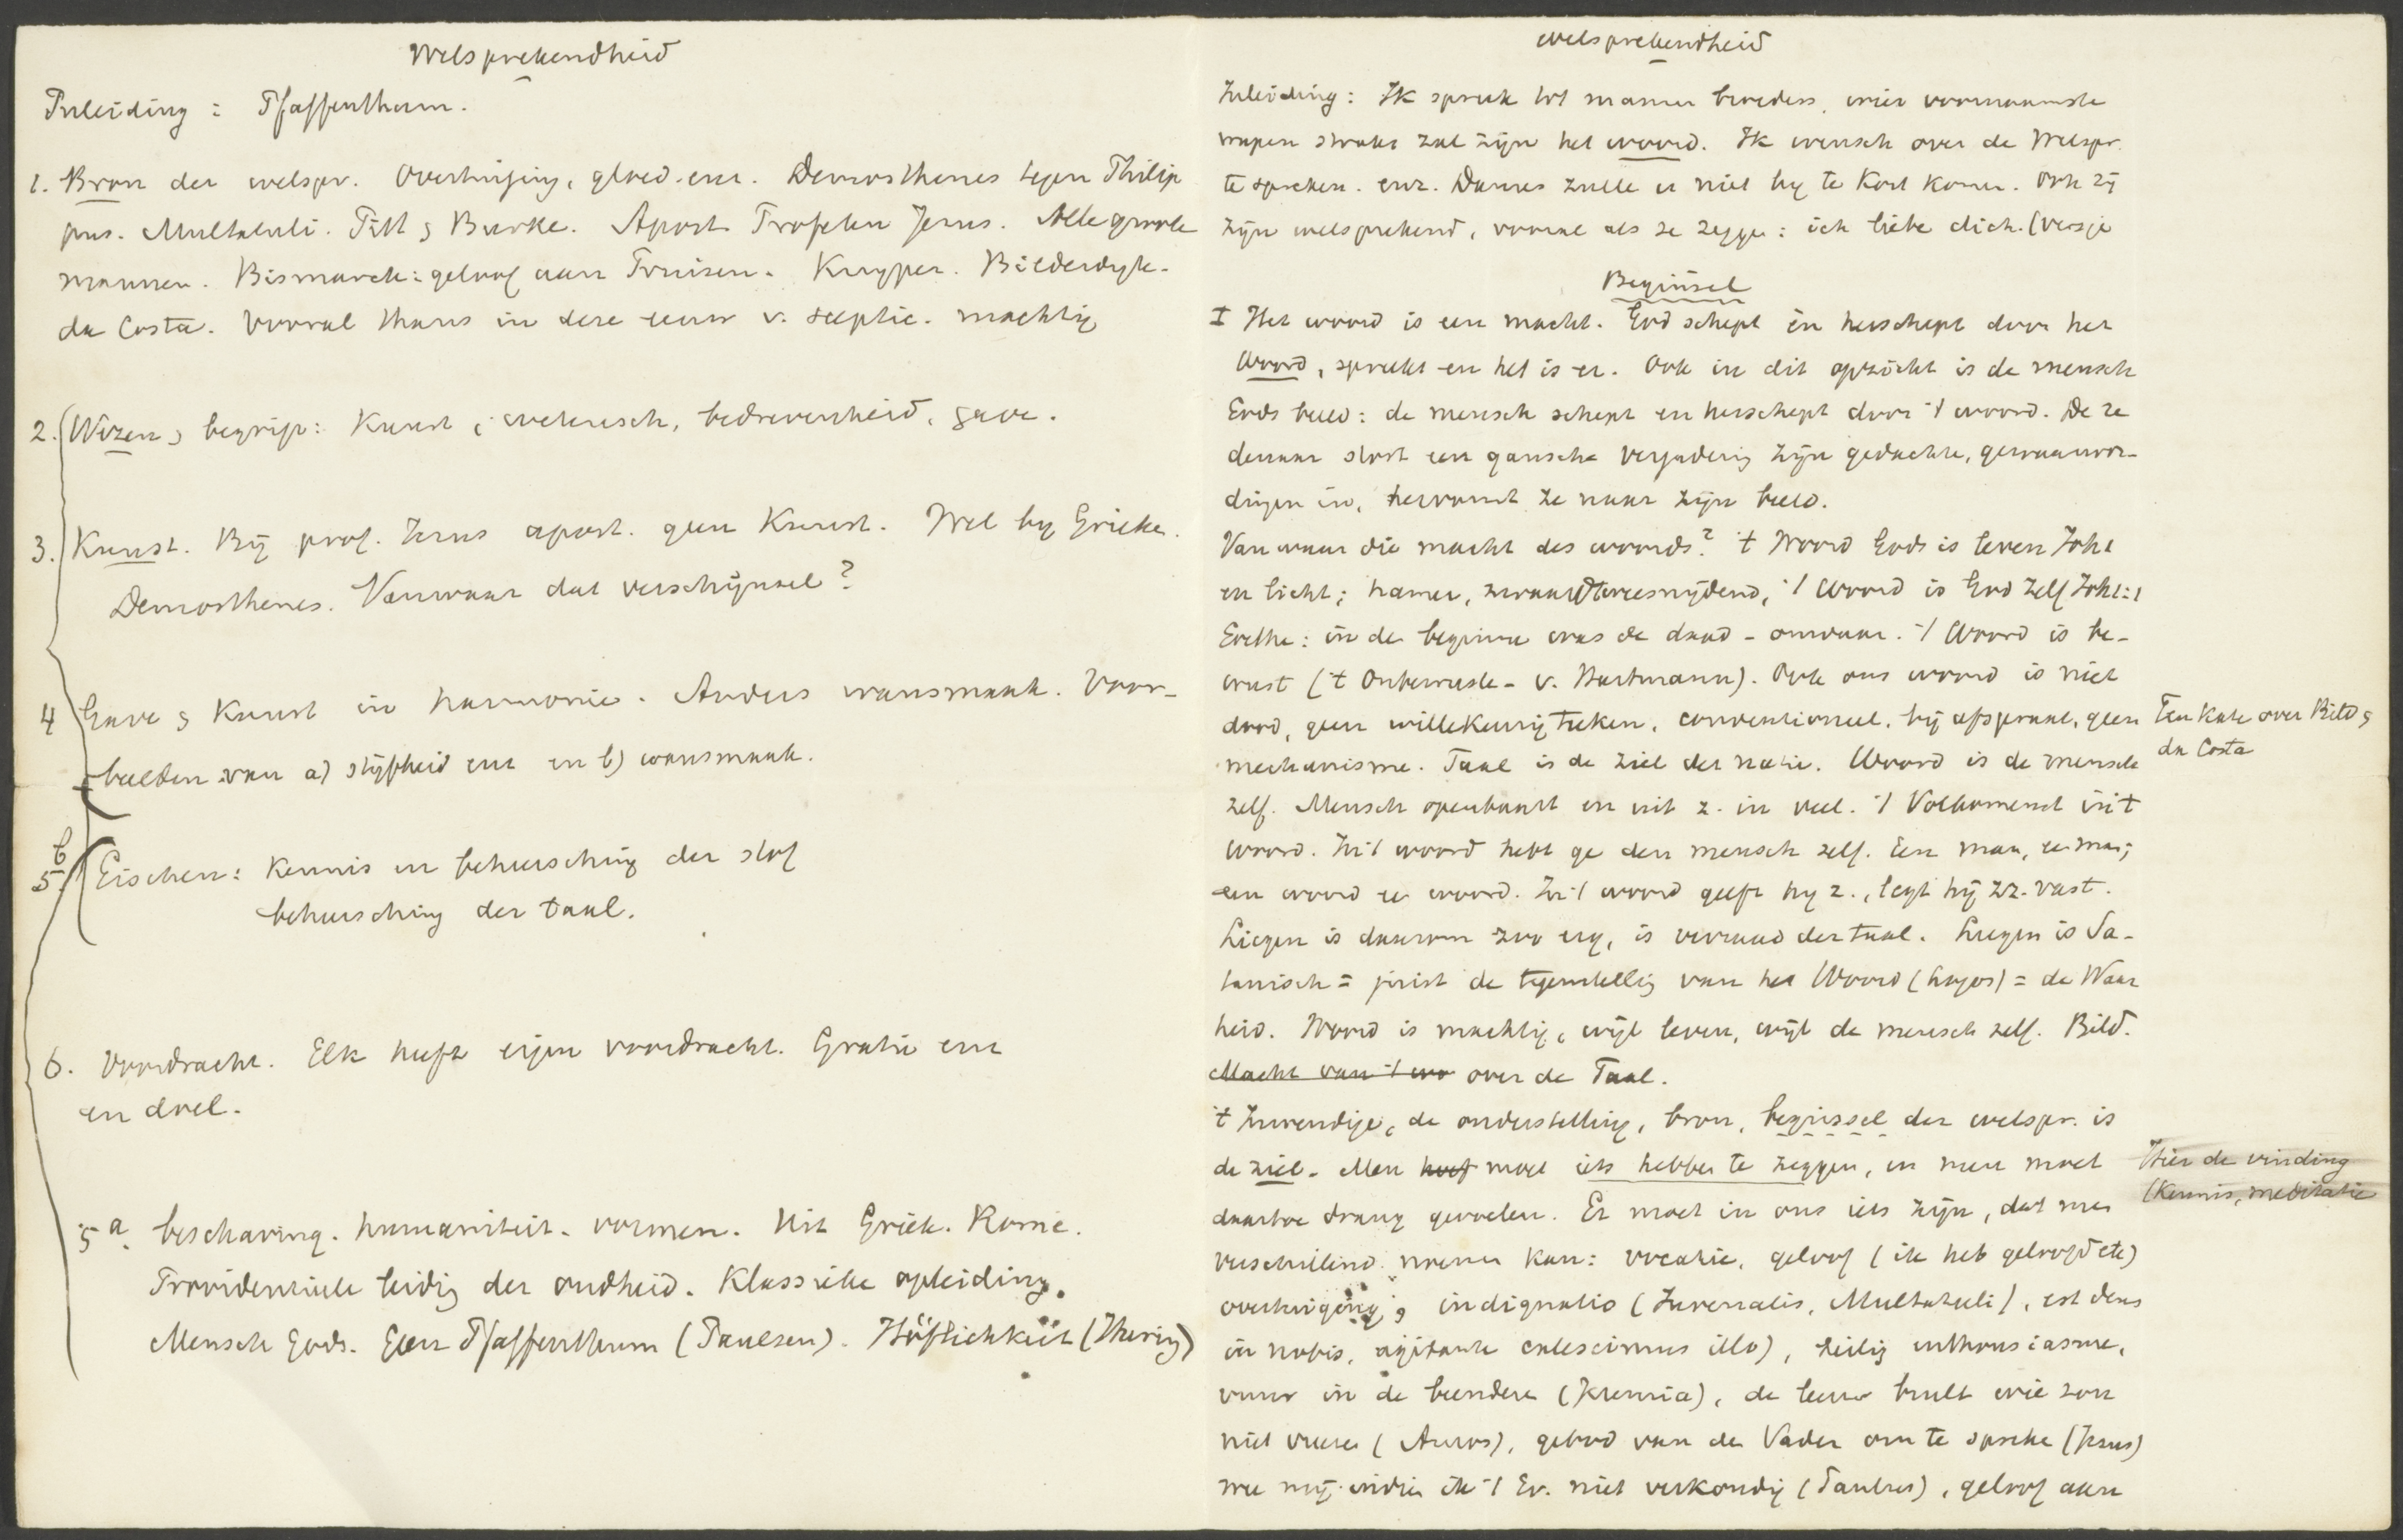 Welsprekendheid
Inleiding: Pfaffenthum.
1. Bron der welspr. Overtuiging, gloed enz. Demosthenes tegen Philip
pus. Multatuli. Pitt & Burke. Apost. Profeten Jezus. Alle groote
mannen. Bismarck: geloof aan Pruisen. Kuyper. Bilderdijk.
da Costa. Vooral thans in deze eeuw v. sceptic. machtig
2. Wezen & begrip: Kunst, wetensch, bedrevenheid, gave.
3. Kunst. Bij prof. Jezus apost. geen Kunst. Wel by Grieken.
Demosthenes. Vanwaar dat verschijnsel?
4 Gave & Kunst in harmonie. Anders wansmaak. Voor-
beelden van a) stijfheid enz en b) wansmaak.
5b Eischen: Kennis en beheersching der stof
beheersching der taal.
6. Voordracht. Elk heeft eigen voordracht. Gratie enz
en doel.
5a. beschaving. humaniteit. vormen. Uit Griek. Rome.
Providentieele leidig der oudheid. Klassieke opleiding.
Mensch Gods. Geen Pfaffenthum (Paulsen). Höflichkeit (Jhering)
Welsprekendheid
Inleiding: Ik spreek tot mannen broeders, wier voornaamste
wapen straks zal zijn het woord. Ik wensch over de Welspr.
te spreken. enz. Dames zulle er niet by te Kort komen. Ook zij
zijn welsprekend, vooral als ze zeggen: ich liebe dich. (versje
Beginsel
I Het woord is een macht. God schept en herschept door het
Woord, spreekt en het is er. Ook in dit opzicht is de mensch
Gods beeld: de mensch schept en herschept door 't woord. De re
denaar stort een gansche vergaderig zijn gedachte, gewaarwor-
dingen in, hervormt ze naar zijn beeld.
Van waar die macht des woords? 't Woord Gods is leven Joh 1
en licht; hamer, zwaard tweesnijdend, 't Woord is God zelf Joh 1:1
Goethe: in den beginne was de daad - onwaar. 't Woord is be-
wust ('t Onbewuste - v. Hartmann). Ook ons woord is niet
dood, geen willekeurig teeken, conventioneel, bij afspraak, geen
mechanisme. Taal is de ziel der natie. Woord is de mensch
zelf. Mensch openbaart en uit z. in veel. 't Volkomenst in 't
woord. In 't woord hebt ge den mensch zelf. Een man, een man;
een woord een woord. In 't woord geeft hy z., legt hij zz. vast.
Liegen is daarom zoo erg, is verraad der taal. Liegen is Sa-
tanisch = juist de tegenstellig van het Woord (Logos) = de Waar
heid. Woord is machtig, wijl leven, wijl de mensch zelf. Bild.
Macht van 't wo over de Taal.
't Inwendige, de onderstelling, bron, beginsel der welspr. is
de ziel. Men hoef moet iets hebben te zeggen, en men moet
daartoe drang gevoelen. Er moet in ons iets zijn, dat men
verschillend noemen kan: vocatie, geloof (ik heb geloofd etc)
overtuiging, indignatio (Juvenalis, Multatuli), est deus
in nobis, agitante calescimus illo), heilig enthousiasme,
vuur in de beenderen (Jeremia), de leeuw brult wie zou
niet vreezen (Amos), gebod van den Vader om te spreken (Jezus)
wee mij indien ik 't Ev. niet verkondig (Paulus), geloof aan
Ten Kate over Bild &
da Costa
Hier de vinding
(Kennis, meditatie